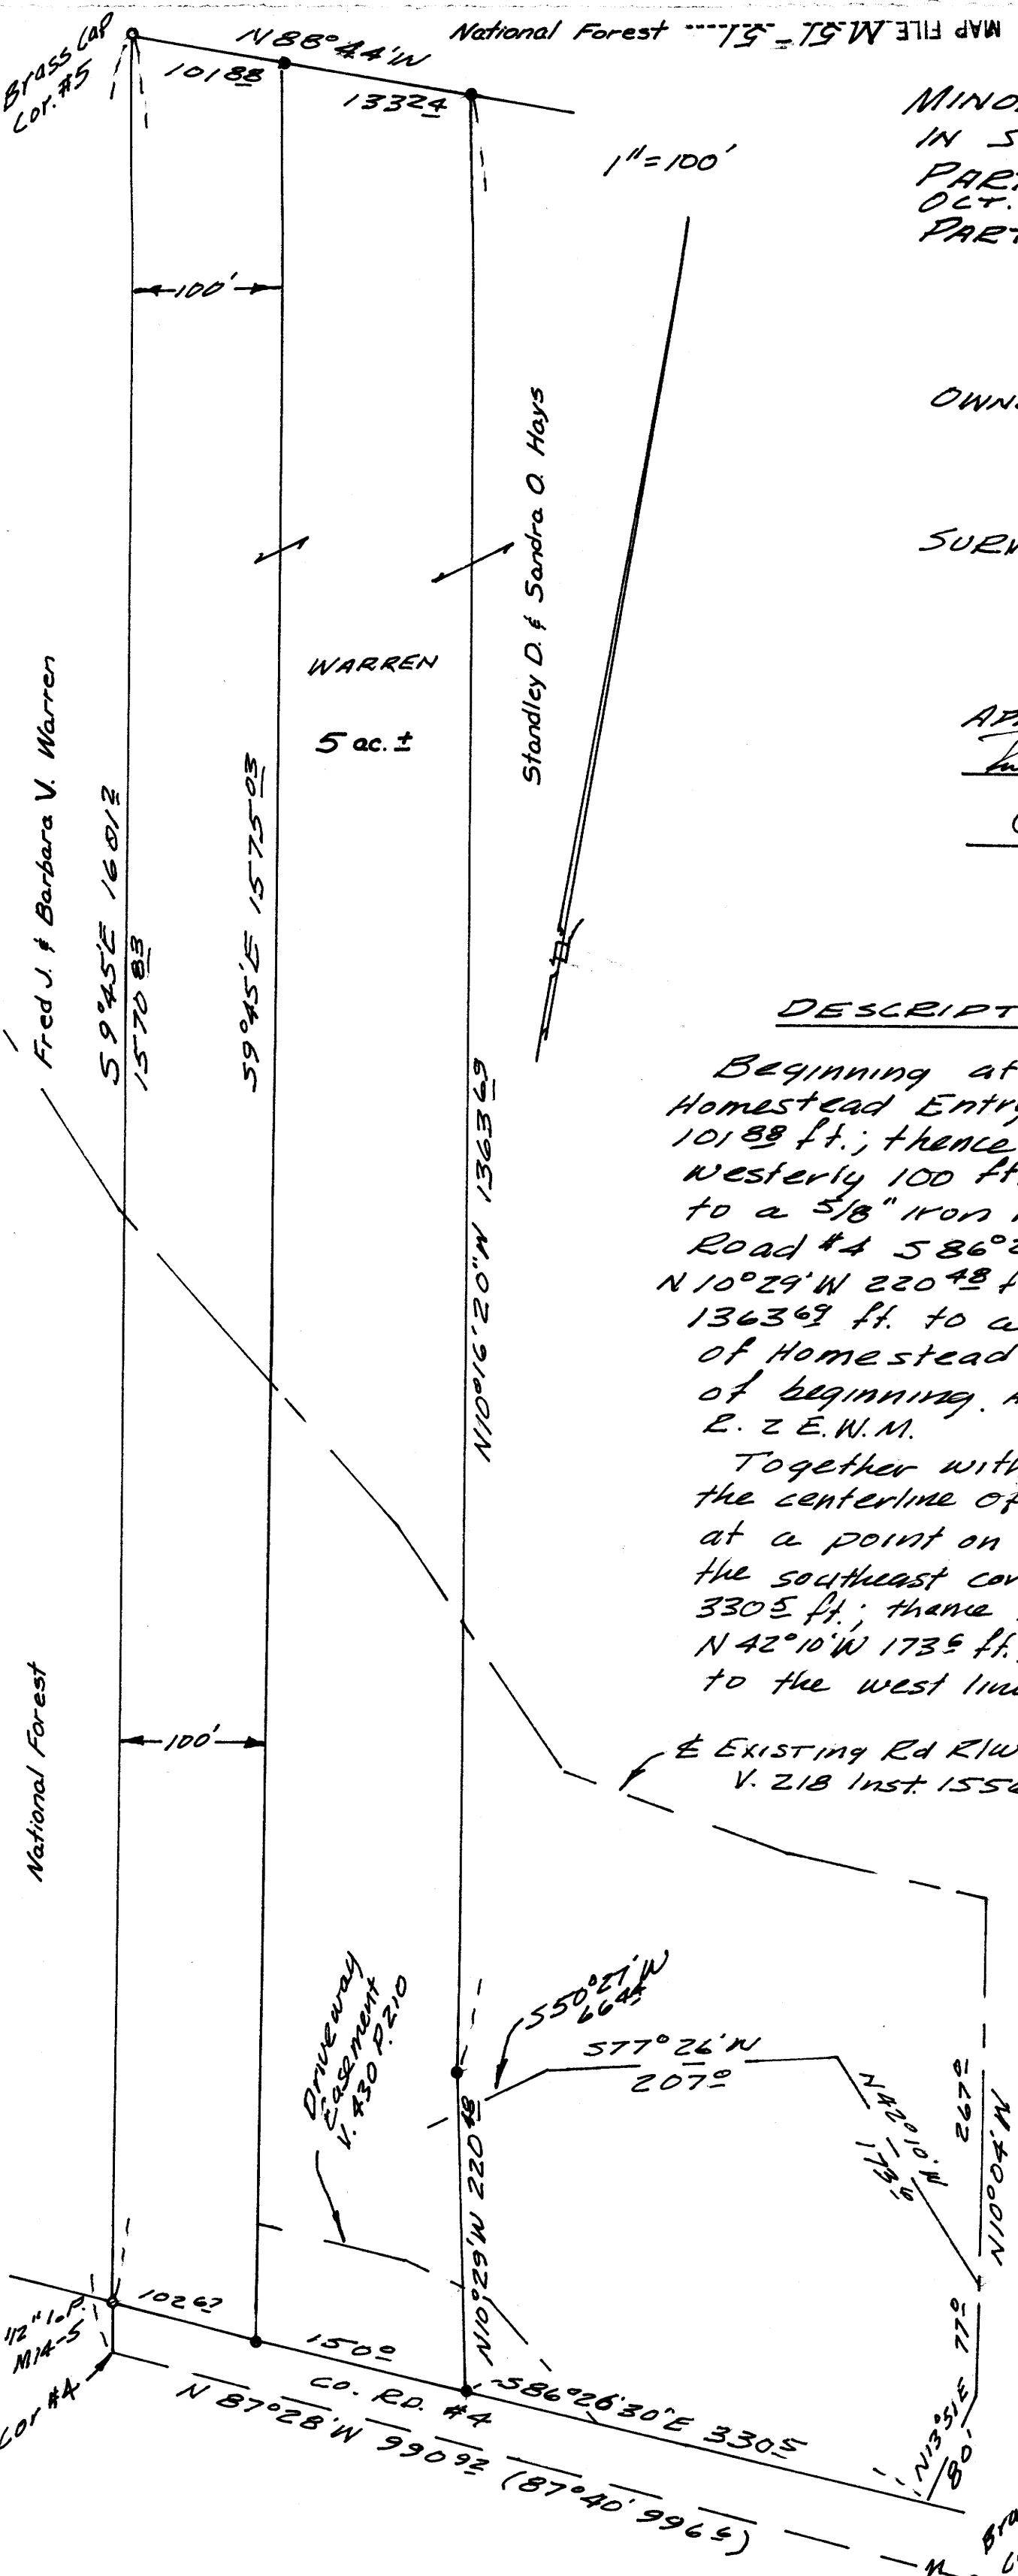 MAP FILE M.51-51
National Forest
Brass Cap
Cor. #5
N88°44'W
101 88
133 24
1"=100'
MINO
IN S
PAR
OCT.
PART
100'
OWN
SUR
Standley D. & Sandra O. Hays
WARREN
5 ac. ±
Fred J. & Barbara V. Warren
S9°45'E 1601 2
1570 83
S9°45'E 1575 03
N10°16'20"W 1363 69
DESCRIPT
Beginning at
Homestead Entry
101 88 ft.; thence
westerly 100 ft.
to a 5/8" iron
Road #4 S86°2
N 10°29'W 220 48 f
1363 69 ft. to a
of Homestead
of beginning.
R. 2 E.W.M.
Together with
the centerline of
at a point on
the southeast cor
330 5 ft.; thence
N 42°10'W 173 6 ft.
to the west line
National Forest
100'
℄ Existing Rd R/W
V. 218 Inst. 155
Driveway
Easement
V. 430 P. 210
S50°27'W
66 44
S77°26'W
207 0
N42°10'W
173 6
267 0
N10°04'W
N10°29'W 220 48
77 0
N13°51'E
80'
1/2" I.P.
M14-5
Cor #4
102 67
150 0
CO. RD. #4
S86°26'30"E 330 5
N 87°28'W 990 92 (87°40' 996 6)
Bra